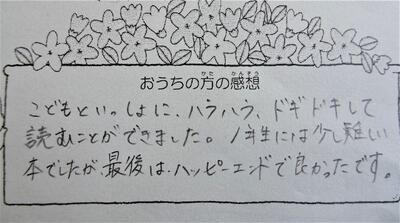 おうちの方の感想
こどもといっしょに、ハラハラ、ドキドキして
読むことができました。1年生には少し難しい
本でしたが、最後は、ハッピーエンドで良かったです。